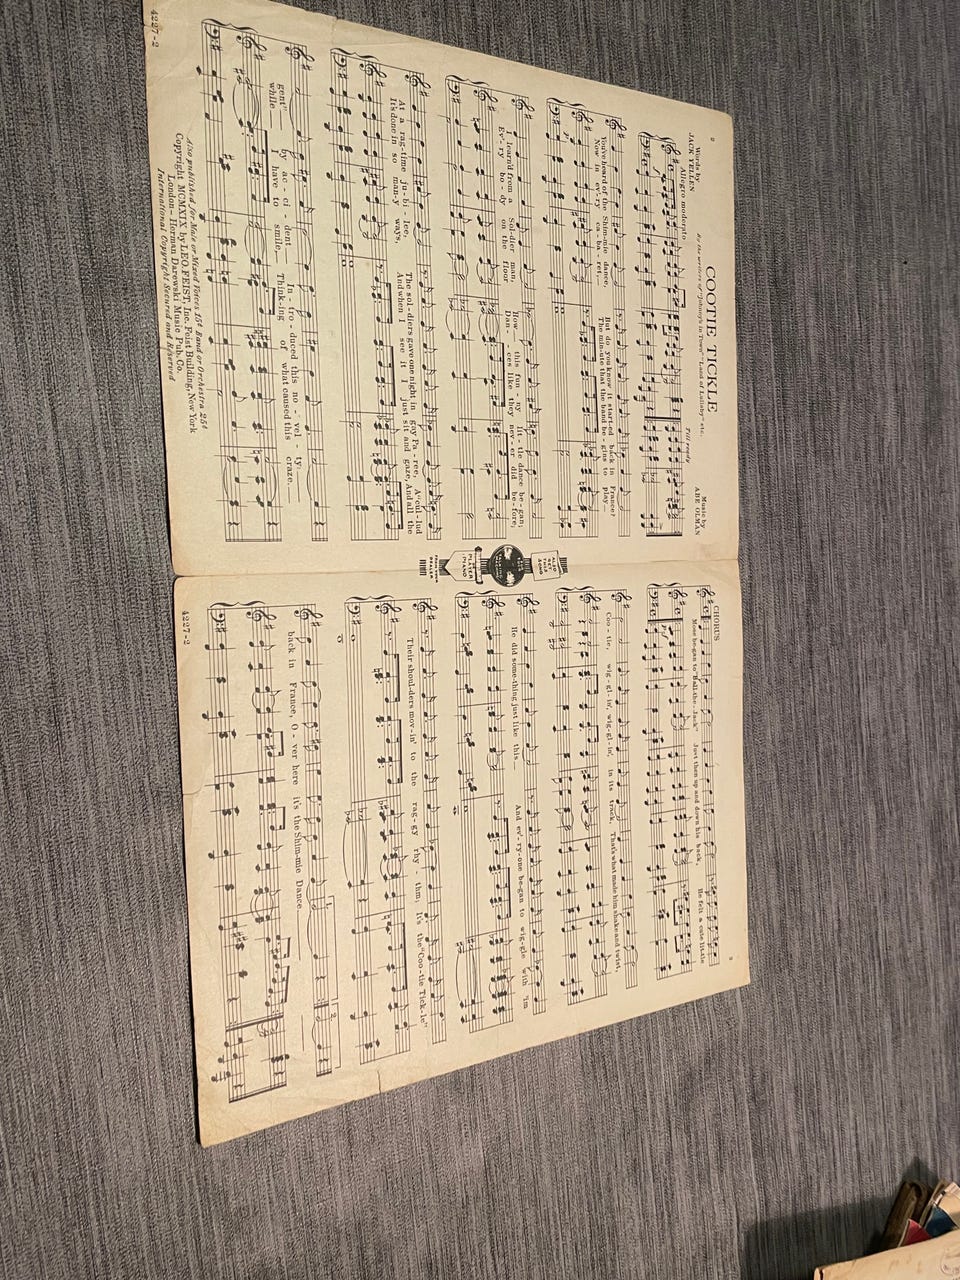 2
COOTIE TICKLE
By the writers of "Johnny's in Town" "Land of Lullaby" etc.
Words by
JACK YELLEN
Music by
ABE OLMAN
Allegro moderato
Till ready
You've heard of the Shim-mie dance, But do you know it start-ed back in France?
Now in ev-'ry ca-ba-ret, The min-ute that the band be-gins to play
I learn'd from a Sol-dier man, How this fun-ny lit-tle dance be-gan;
Ev-'ry bo-dy on the floor, Dan-ces like they nev-er did be-fore;
At a rag-time ju-bi-lee, The sol-diers gave one night in gay Pa-ree, A "cul-lud
It's done in so man-y ways, And when I see it I just sit and gaze, And all the
gent" by ac-ci-dent In-tro-duced this no-vel-ty.
while I have to smile, Think-ing of what caused this craze.
Also published for Male or Mixed Voices 15¢ Band or Orchestra 25¢
Copyright MCMXIX by LEO. FEIST, Inc. Feist Building, New York
London - Herman Darewski Music Pub. Co.
International Copyright Secured and Reserved
4227-2
ALSO
GET
THIS
SONG
FOR YOUR
TALKING
MACHINE
PLAYER
PIANO
FROM YOUR
DEALER
3
CHORUS
Mose be-gan to "Ball-the-Jack" Just then up and down his back, He felt a cute lit-tle
Coo-tie, wig-gl-in', wig-gl-in', in its track, That's what made him shake and twist,
He did some-thing just like this And ev-'ry-one be-gan to wig-gle with 'im
Their shoul-ders mov-in' to the rag-gy rhy-thm; It's the "Coo-tie Tick-le"
back in France, O-ver here it's the Shim-mie Dance.
1.
2.
4227-2